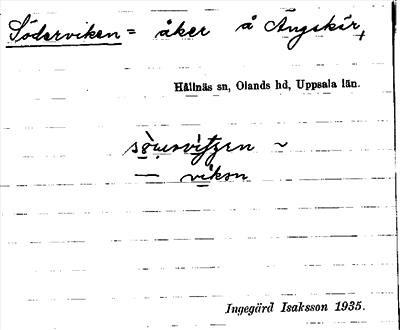 Söderviken = åker å Ängskär,
Hållnäs sn, Olands hd, Uppsala län.
~
— vikən
Ingegärd Isaksson 1935.